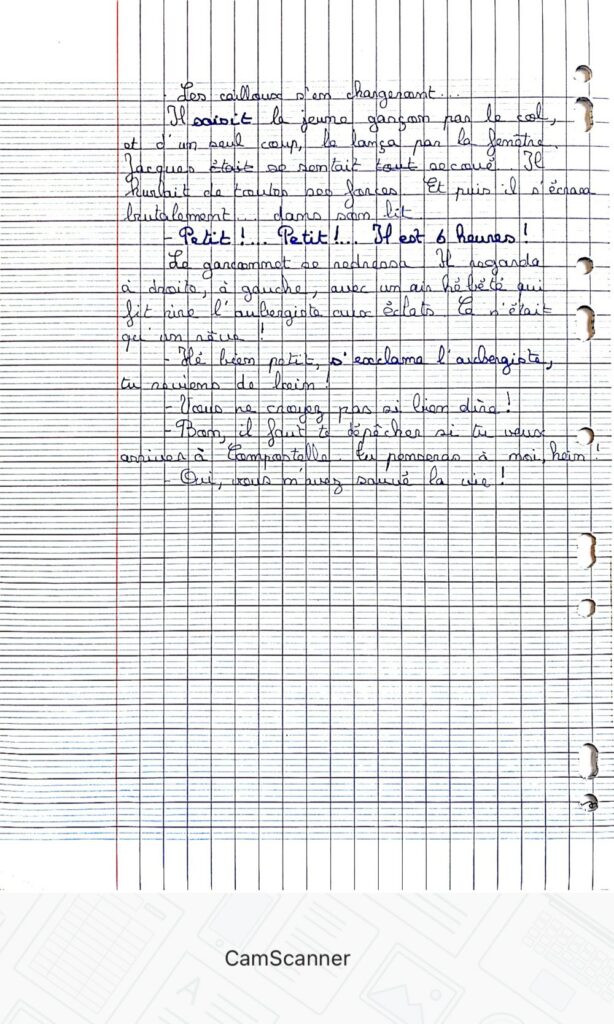 Les cailloux s'en chargeront...
Il saisit la jeune garçon par le col,
et d'un seul coup, le lança par la fenêtre.
Jacques était se sentait tout secoué. Il
hurlait de toutes ses forces. Et puis il s'écrasa
brutalement... dans son lit.
- Petit !... Petit !... Il est 6 heures !
Le garconnet se redressa. Il regarda
à droite, à gauche, avec un air hébété qui
fit rire l'aubergiste aux éclats. Ce n'était
qu'un rêve !
- Hé bien petit, s'exclama l'aubergiste,
tu reviens de loin !
- Vous ne croyez pas si bien dire !
- Bon, il faut te dépêcher si tu veux
arriver à Compostelle. Tu penseras à moi, hein !
- Oui, vous m'avez sauvé la vie !
CamScanner